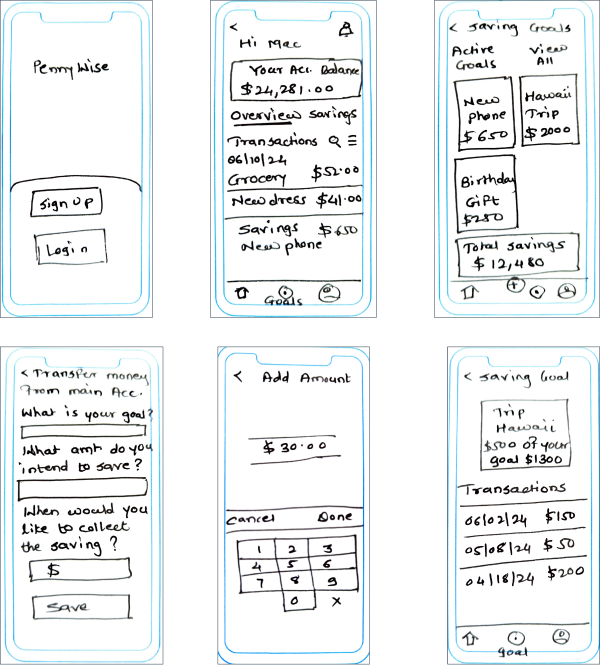 PennyWise
Sign Up
Login
<
Hi Mac
Your Acc. Balance
$24,281.00
Overview Savings
Transactions
06/10/24
Grocery $52.00
New dress $41.00
Savings $650
New phone
Goals
< Saving Goals
Active View
Goals All
New
phone
$650
Hawaii
Trip
$2000
Birthday
Gift
$250
Total savings
$12,480
< Transfer money
From main Acc.
What is your goal?
What amt do you
intend to save?
When would you
like to collect
the saving?
$
Save
< Add Amount
$30.00
Cancel Done
1 2 3
4 5 6
7 8 9
0 X
< Saving Goal
Trip
Hawaii
$500 of your
goal $1300
Transactions
06/02/24 $150
05/08/24 $50
04/18/24 $200
goal